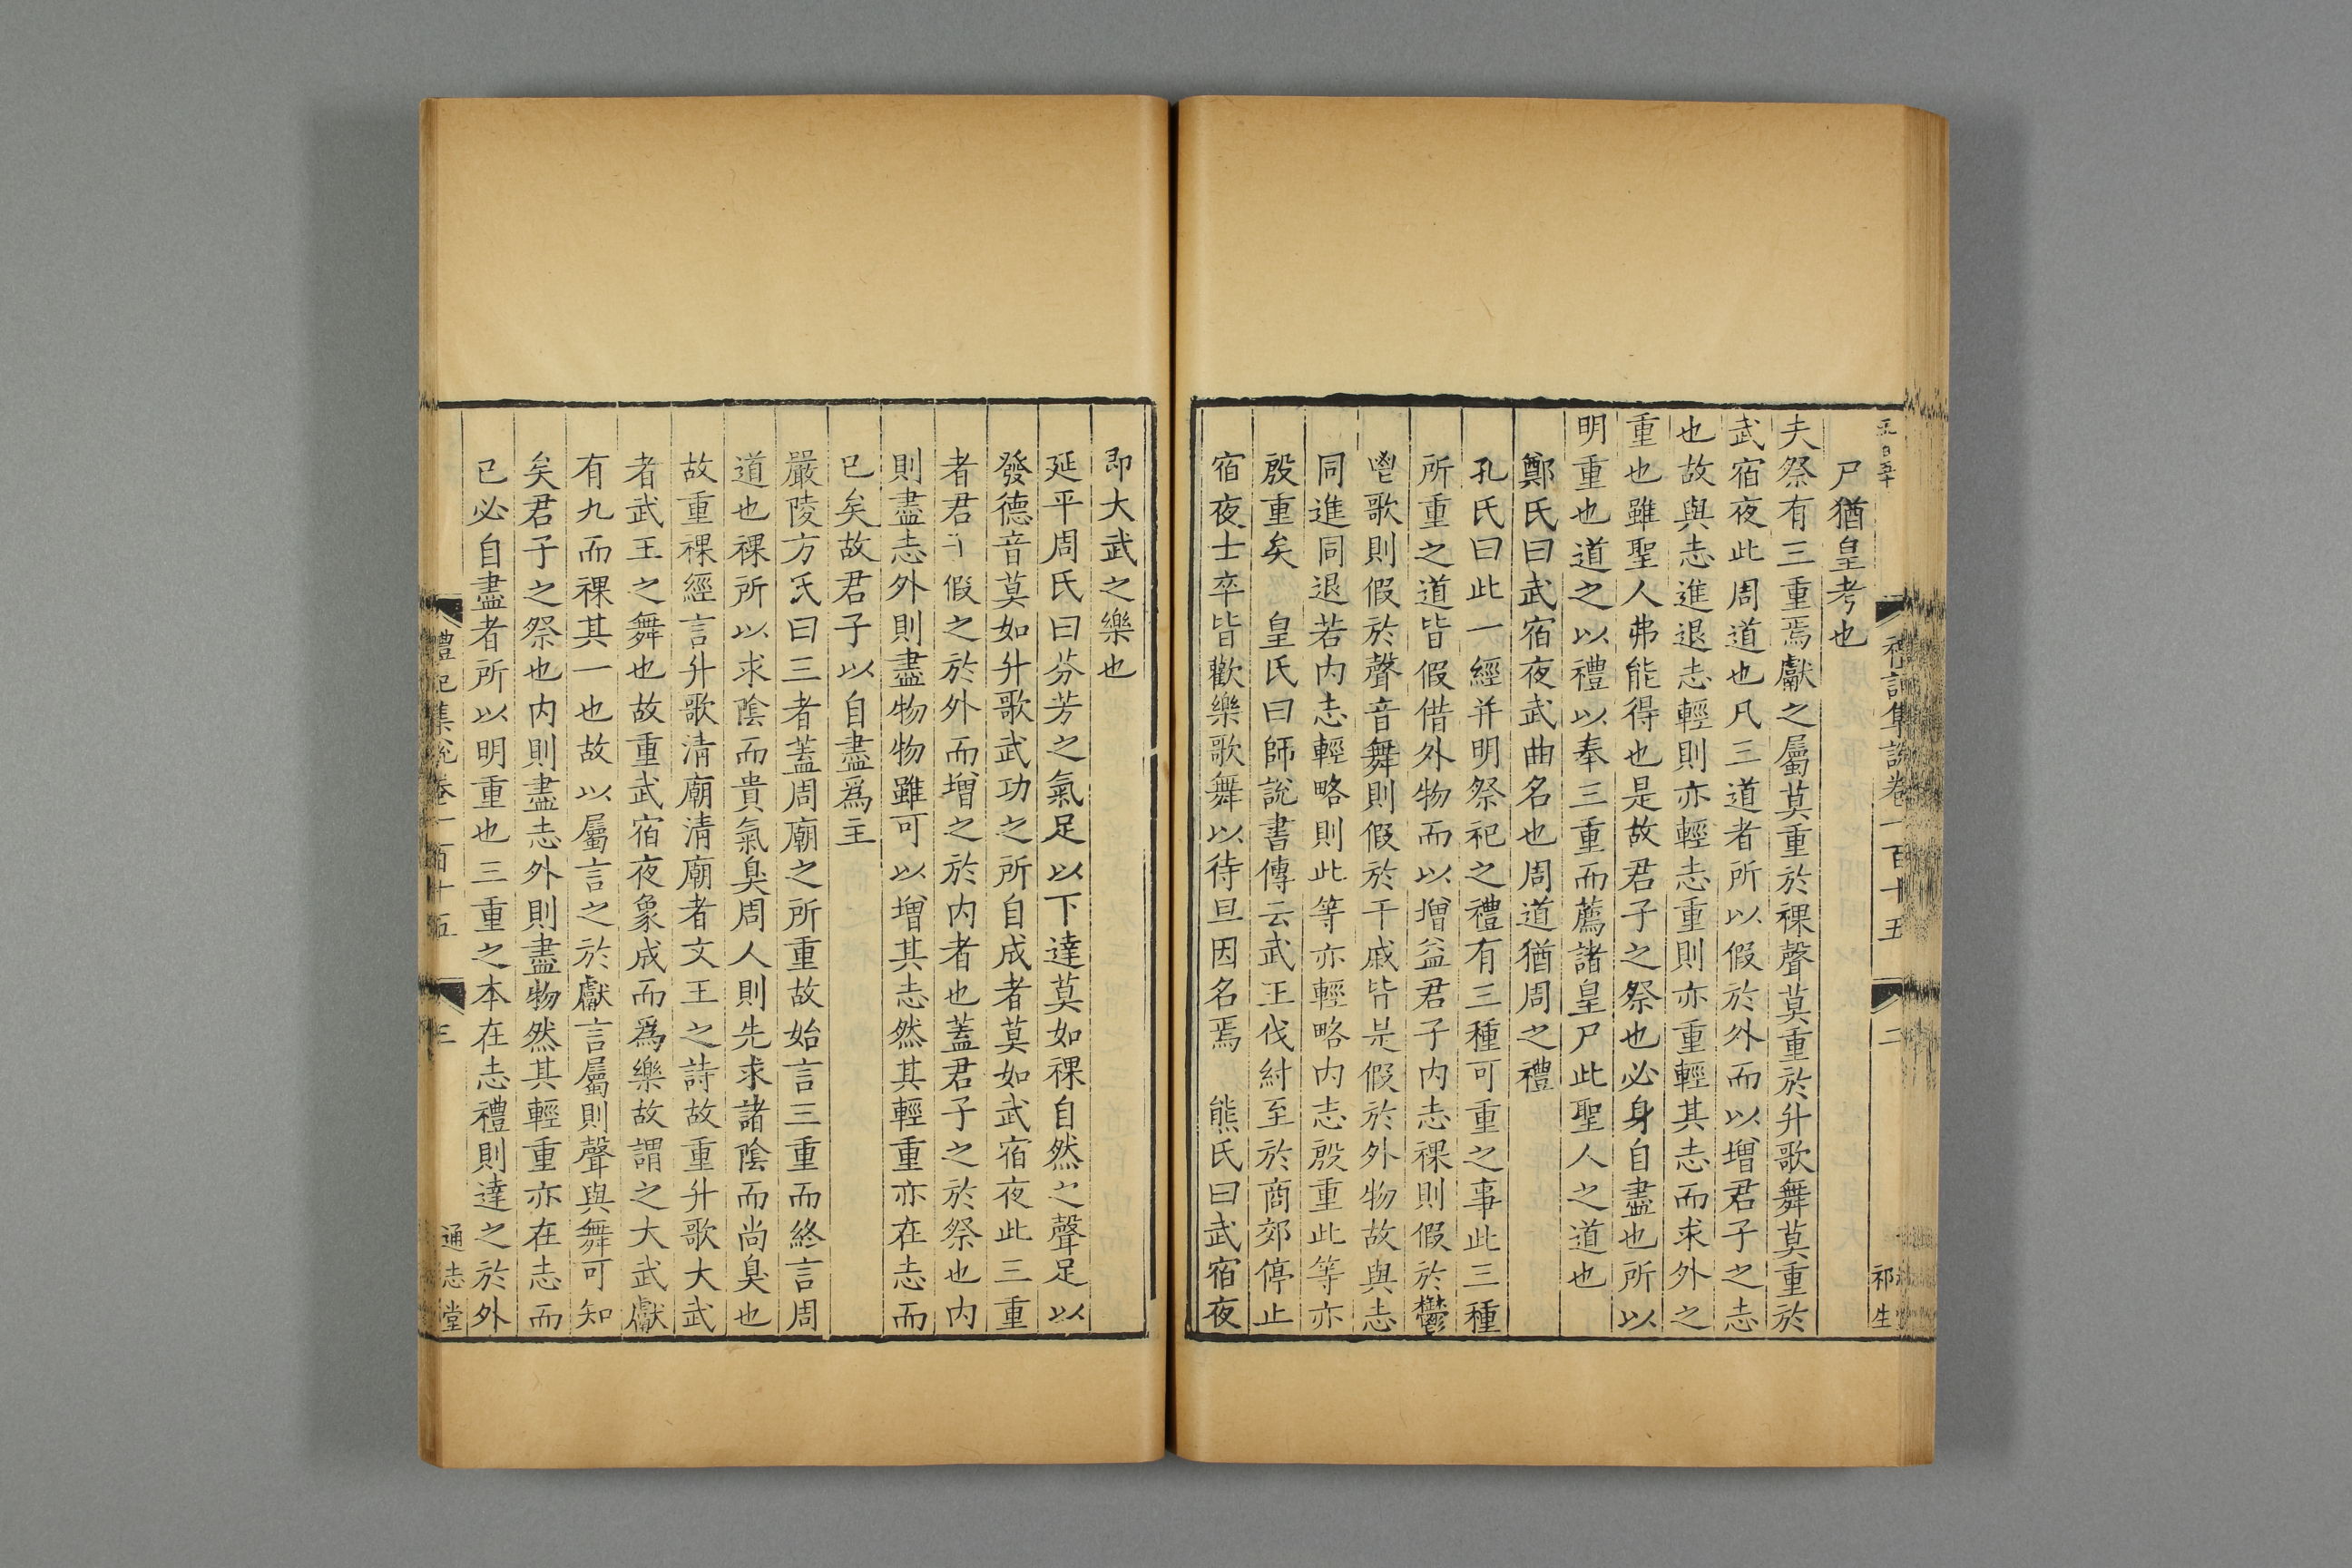 尸猶皇考也
夫祭有三重焉獻之屬莫重於祼聲莫重於升歌舞莫重於
武宿夜此周道也凡三道者所以假於外而以增君子之志
也故與志進退志輕則亦輕志重則亦重輕其志而求外之
重也雖聖人弗能得也是故君子之祭也必身自盡也所以
明重也道之以禮以奉三重而薦諸皇尸此聖人之道也
鄭氏曰武宿夜武曲名也周道猶周之禮
孔氏曰此一經并明祭祀之禮有三種可重之事此三種
所重之道皆假借外物而以增益君子内志祼則假於鬱
鬯歌則假於聲音舞則假於干戚皆是假於外物故與志
同進同退若内志輕略則此等亦輕略内志殷重此等亦
殷重矣 皇氏曰師說書傳云武王伐紂至於商郊停止
宿夜士卒皆歡樂歌舞以待旦因名焉 熊氏曰武宿夜
禮記集說卷一百十五
二
祁生
即大武之樂也
延平周氏曰芬芳之氣足以下達莫如祼自然之聲足以
發德音莫如升歌武功之所自成者莫如武宿夜此三重
者君子假之於外而增之於内者也蓋君子之於祭也内
則盡志外則盡物物雖可以增其志然其輕重亦在志而
已矣故君子以自盡爲主
嚴陵方氏曰三者蓋周廟之所重故始言三重而終言周
道也祼所以求陰而貴氣臭周人則先求諸陰而尚臭也
故重祼經言升歌清廟清廟者文王之詩故重升歌大武
者武王之舞也故重武宿夜象成而爲樂故謂之大武獻
有九而祼其一也故以屬言之於獻言屬則聲與舞可知
矣君子之祭也内則盡志外則盡物然其輕重亦在志而
已必自盡者所以明重也三重之本在志禮則達之於外
禮記集說卷一百十五
三
通志堂